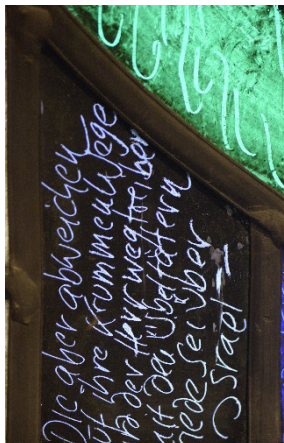 Die aber abweichen
auf ihre krummen Wege
wird der Herr wegtreiben
mit den Übeltätern
Friede sei über
Israel